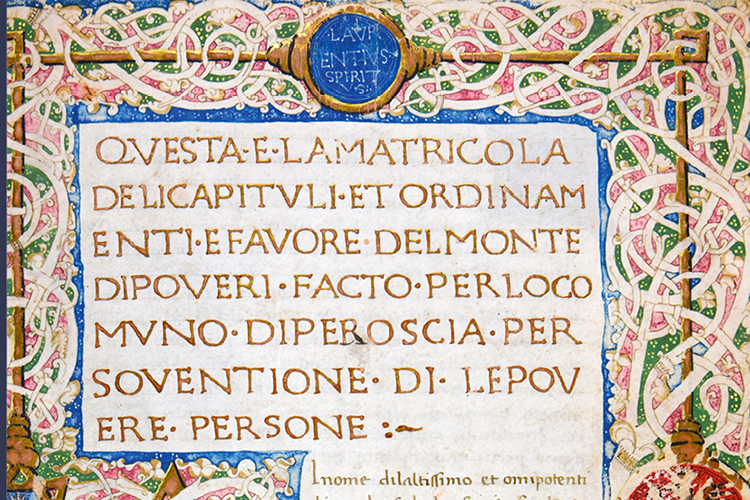 ·LAVR
ENTIVS·
SPIRIT
VS·:
QVESTA·E·LAMATRICOLA
DELICAPITVLI·ET ORDINAM
ENTI·EFAVORE·DELMONTE
DIPOVERI·FACTO·PERLOCO
MVNO·DIPEROSCIA·PER
SOVENTIONE·DI·LEPOV
ERE·PERSONE :~
Inome dilaltissimo et omnipotenti